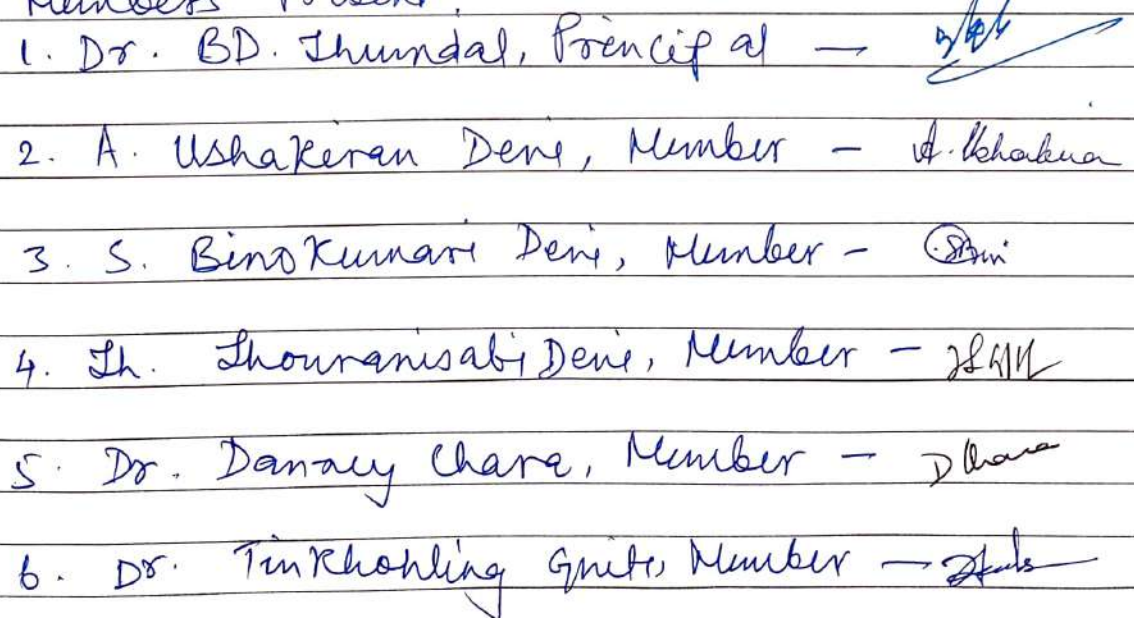 Members Present:
1. Dr. BD. Thumdal, Principal —
2. A. Ushakiran Devi, Member – A. Ushakiran
3. S. Binokumari Devi, Member –
4. Th. Thouranisabi Devi, Member –
5. Dr. Danacy Chara, Member – DChara
6. Dr. Tinkhohling Gnite, Member —